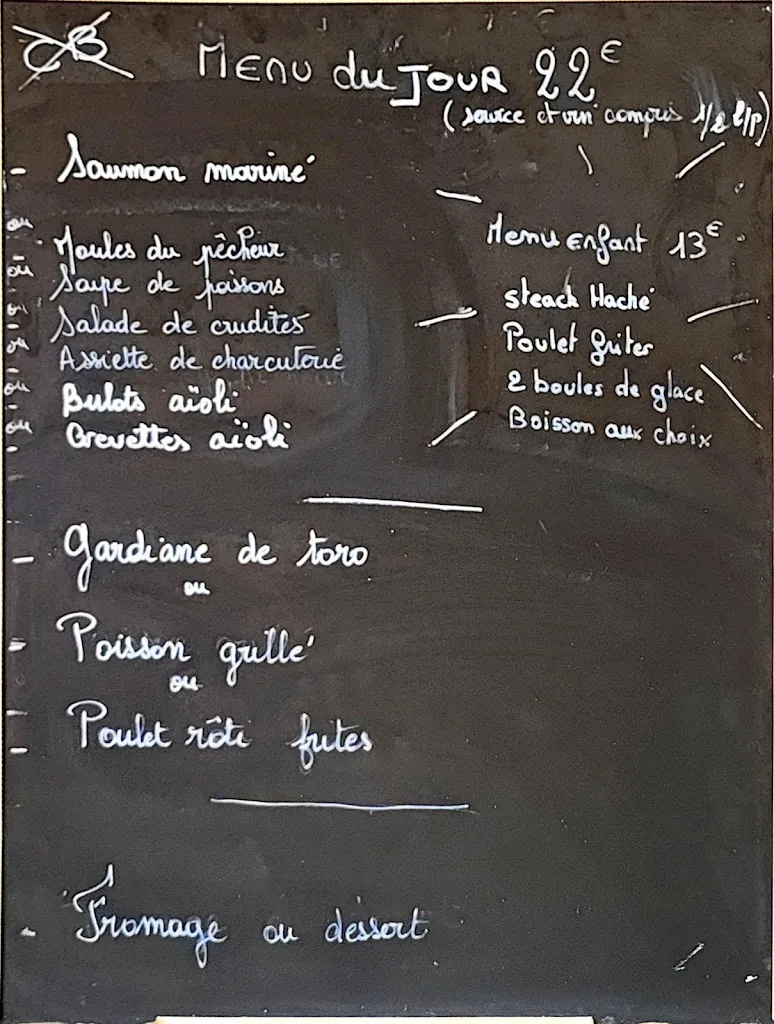 CB
MENU du JOUR 22€
(service et vin compris 1/2 l/P)
- Saumon mariné
ou
- Moules du pêcheur
ou
- Soupe de poissons
ou
- Salade de crudités
ou
- Assiette de charcuterie
ou
- Bulots aïoli
ou
- Crevettes aïoli
Menu enfant 13€
steack Haché
Poulet frites
2 boules de glace
Boisson aux choix
- Gardiane de toro
ou
- Poisson grillé
ou
- Poulet rôti frites
- Fromage ou dessert